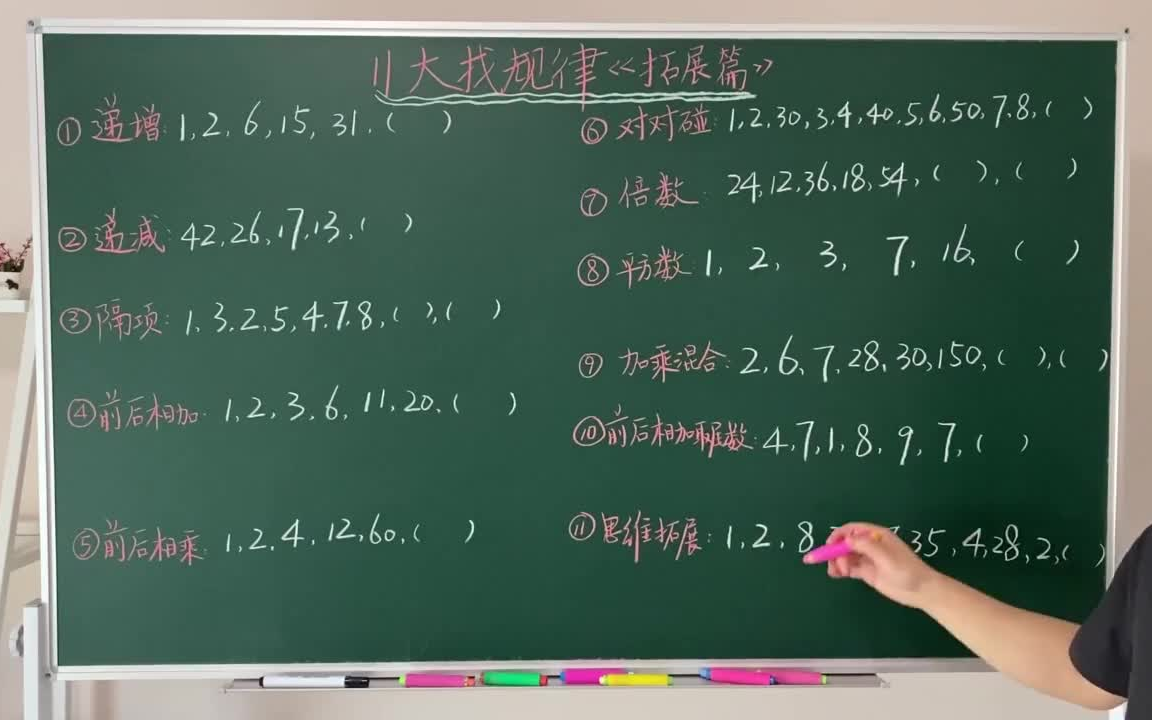 11大找规律《拓展篇》
①递增:1,2,6,15,31,( )
②递减:42,26,17,13,( )
③隔项:1,3,2,5,4,7,8,( ),( )
④前后相加:1,2,3,6,11,20,( )
⑤前后相乘:1,2,4,12,60,( )
⑥对对碰:1,2,30,3,4,40,5,6,50,7,8,( )
⑦倍数:24,12,36,18,54,( ),( )
⑧平方数:1,2,3,7,16,( )
⑨加乘混合:2,6,7,28,30,150,( ),( )
⑩前后相加取尾数:4,7,1,8,9,7,( )
⑪思维拓展:1,2,8 35,4,28,2,( )